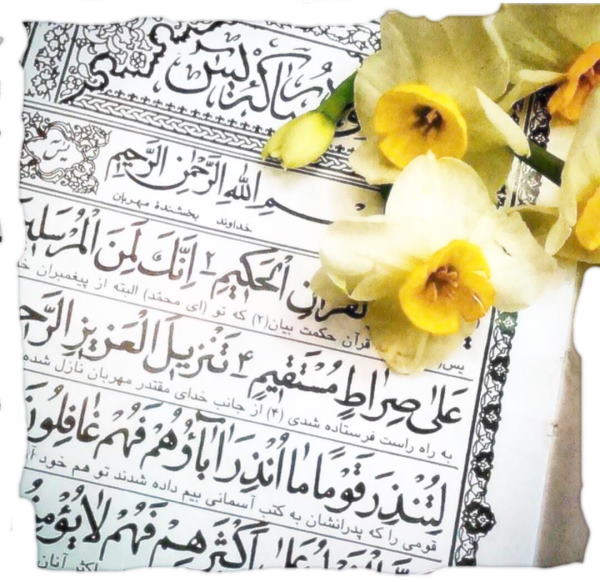 مبارکه یس
یس
اللهِ الرَّحْمٰنِ الرَّحيمِ
خداوند بخشندهٔ مهربان
الْحَكيمِ ۲ اِنَّكَ لَمِنَ الْمُرْسَلي
یس قرآن حکمت بیان(۲) که تو (ای محمّد) البته از پیغمبران
عَلىٰ صِراطٍ مُسْتَقيمٍ ۴ تَنْزيلَ الْعَزيزِ
به راه راست فرستاده شدی (۴) از جانب خدای مقتدر مهربان نازل شده
لِتُنْذِرَ قَوْمًا ما اُنْذِرَ اٰبآؤُهُمْ فَهُمْ غافِلُون
قومی را که پدرانشان به کتب آسمانی بیم داده شدند تو هم خود
عَلىٰ اَكْثَرِهِمْ فَهُمْ لا
اکثر آنان